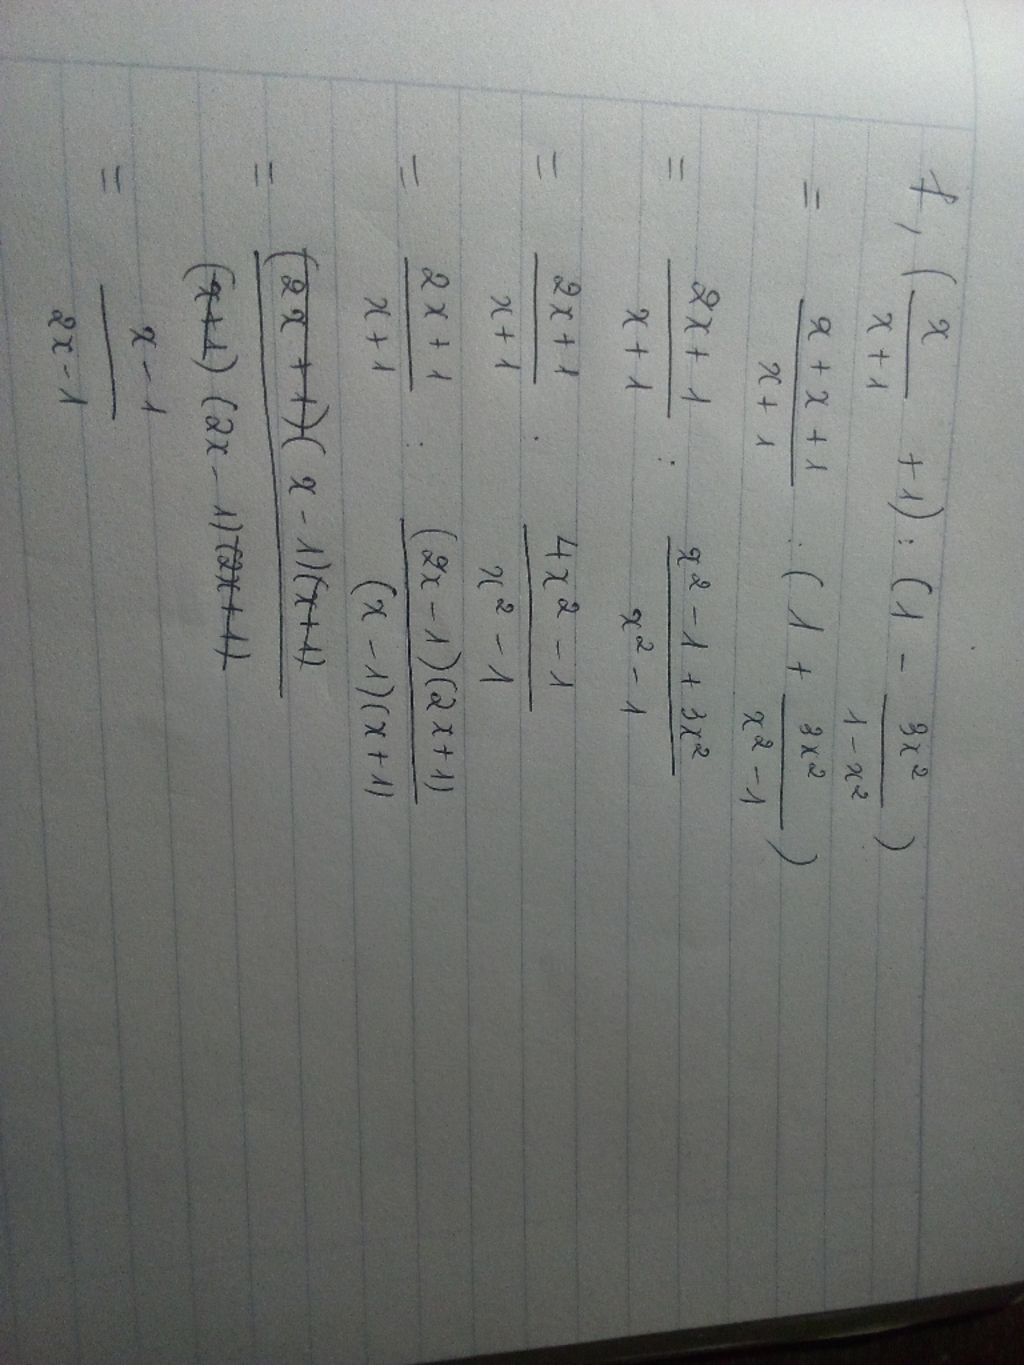 f, (x/(x+1) + 1) : (1 - 3x²/(1-x²))
= (x+x+1)/(x+1) : (1 + 3x²/(x²-1))
= (2x+1)/(x+1) : (x²-1+3x²)/(x²-1)
= (2x+1)/(x+1) : (4x²-1)/(x²-1)
= (2x+1)/(x+1) : ((2x-1)(2x+1))/((x-1)(x+1))
= ((2x+1)(x-1)(x+1))/((x+1)(2x-1)(2x+1))
= (x-1)/(2x-1)